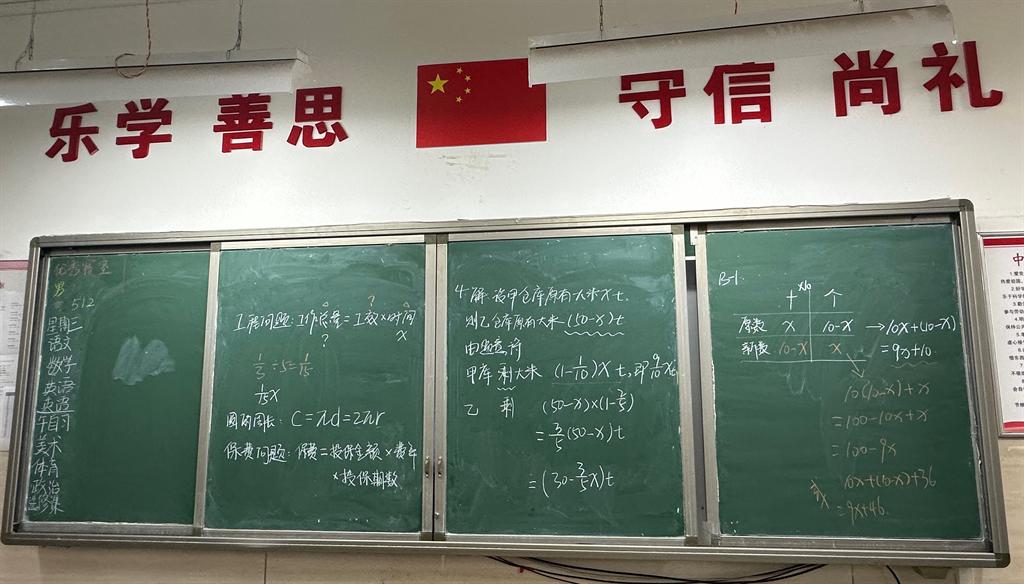 乐学 善思 守信 尚礼
优秀寝室
男
512
星期三
语文
数学
英语
英语
午自习
美术
体育
政治
选修课
工程问题:工作总量=工效×时间
? ?
x
1/3÷5=1/15
1/15x
圆的周长: C=πd=2πr
保费问题:保费=投保金额×费率
×投保期数
4.解:设甲仓库原有大米xt.
则乙仓库原有大米(50-x)t
由题意得
甲库剩大米 (1-1/10)x t,即9/10xt
乙 剩 (50-x)×(1-2/5)
=3/5(50-x)t
=(30-3/5x)t
B-1.
十 个
原数 x 10-x →10x+(10-x)
新数 10-x x =9x+10
10(10-x)+x
=100-10x+x
=100-9x
或 10x+(10-x)+36
=9x+46.